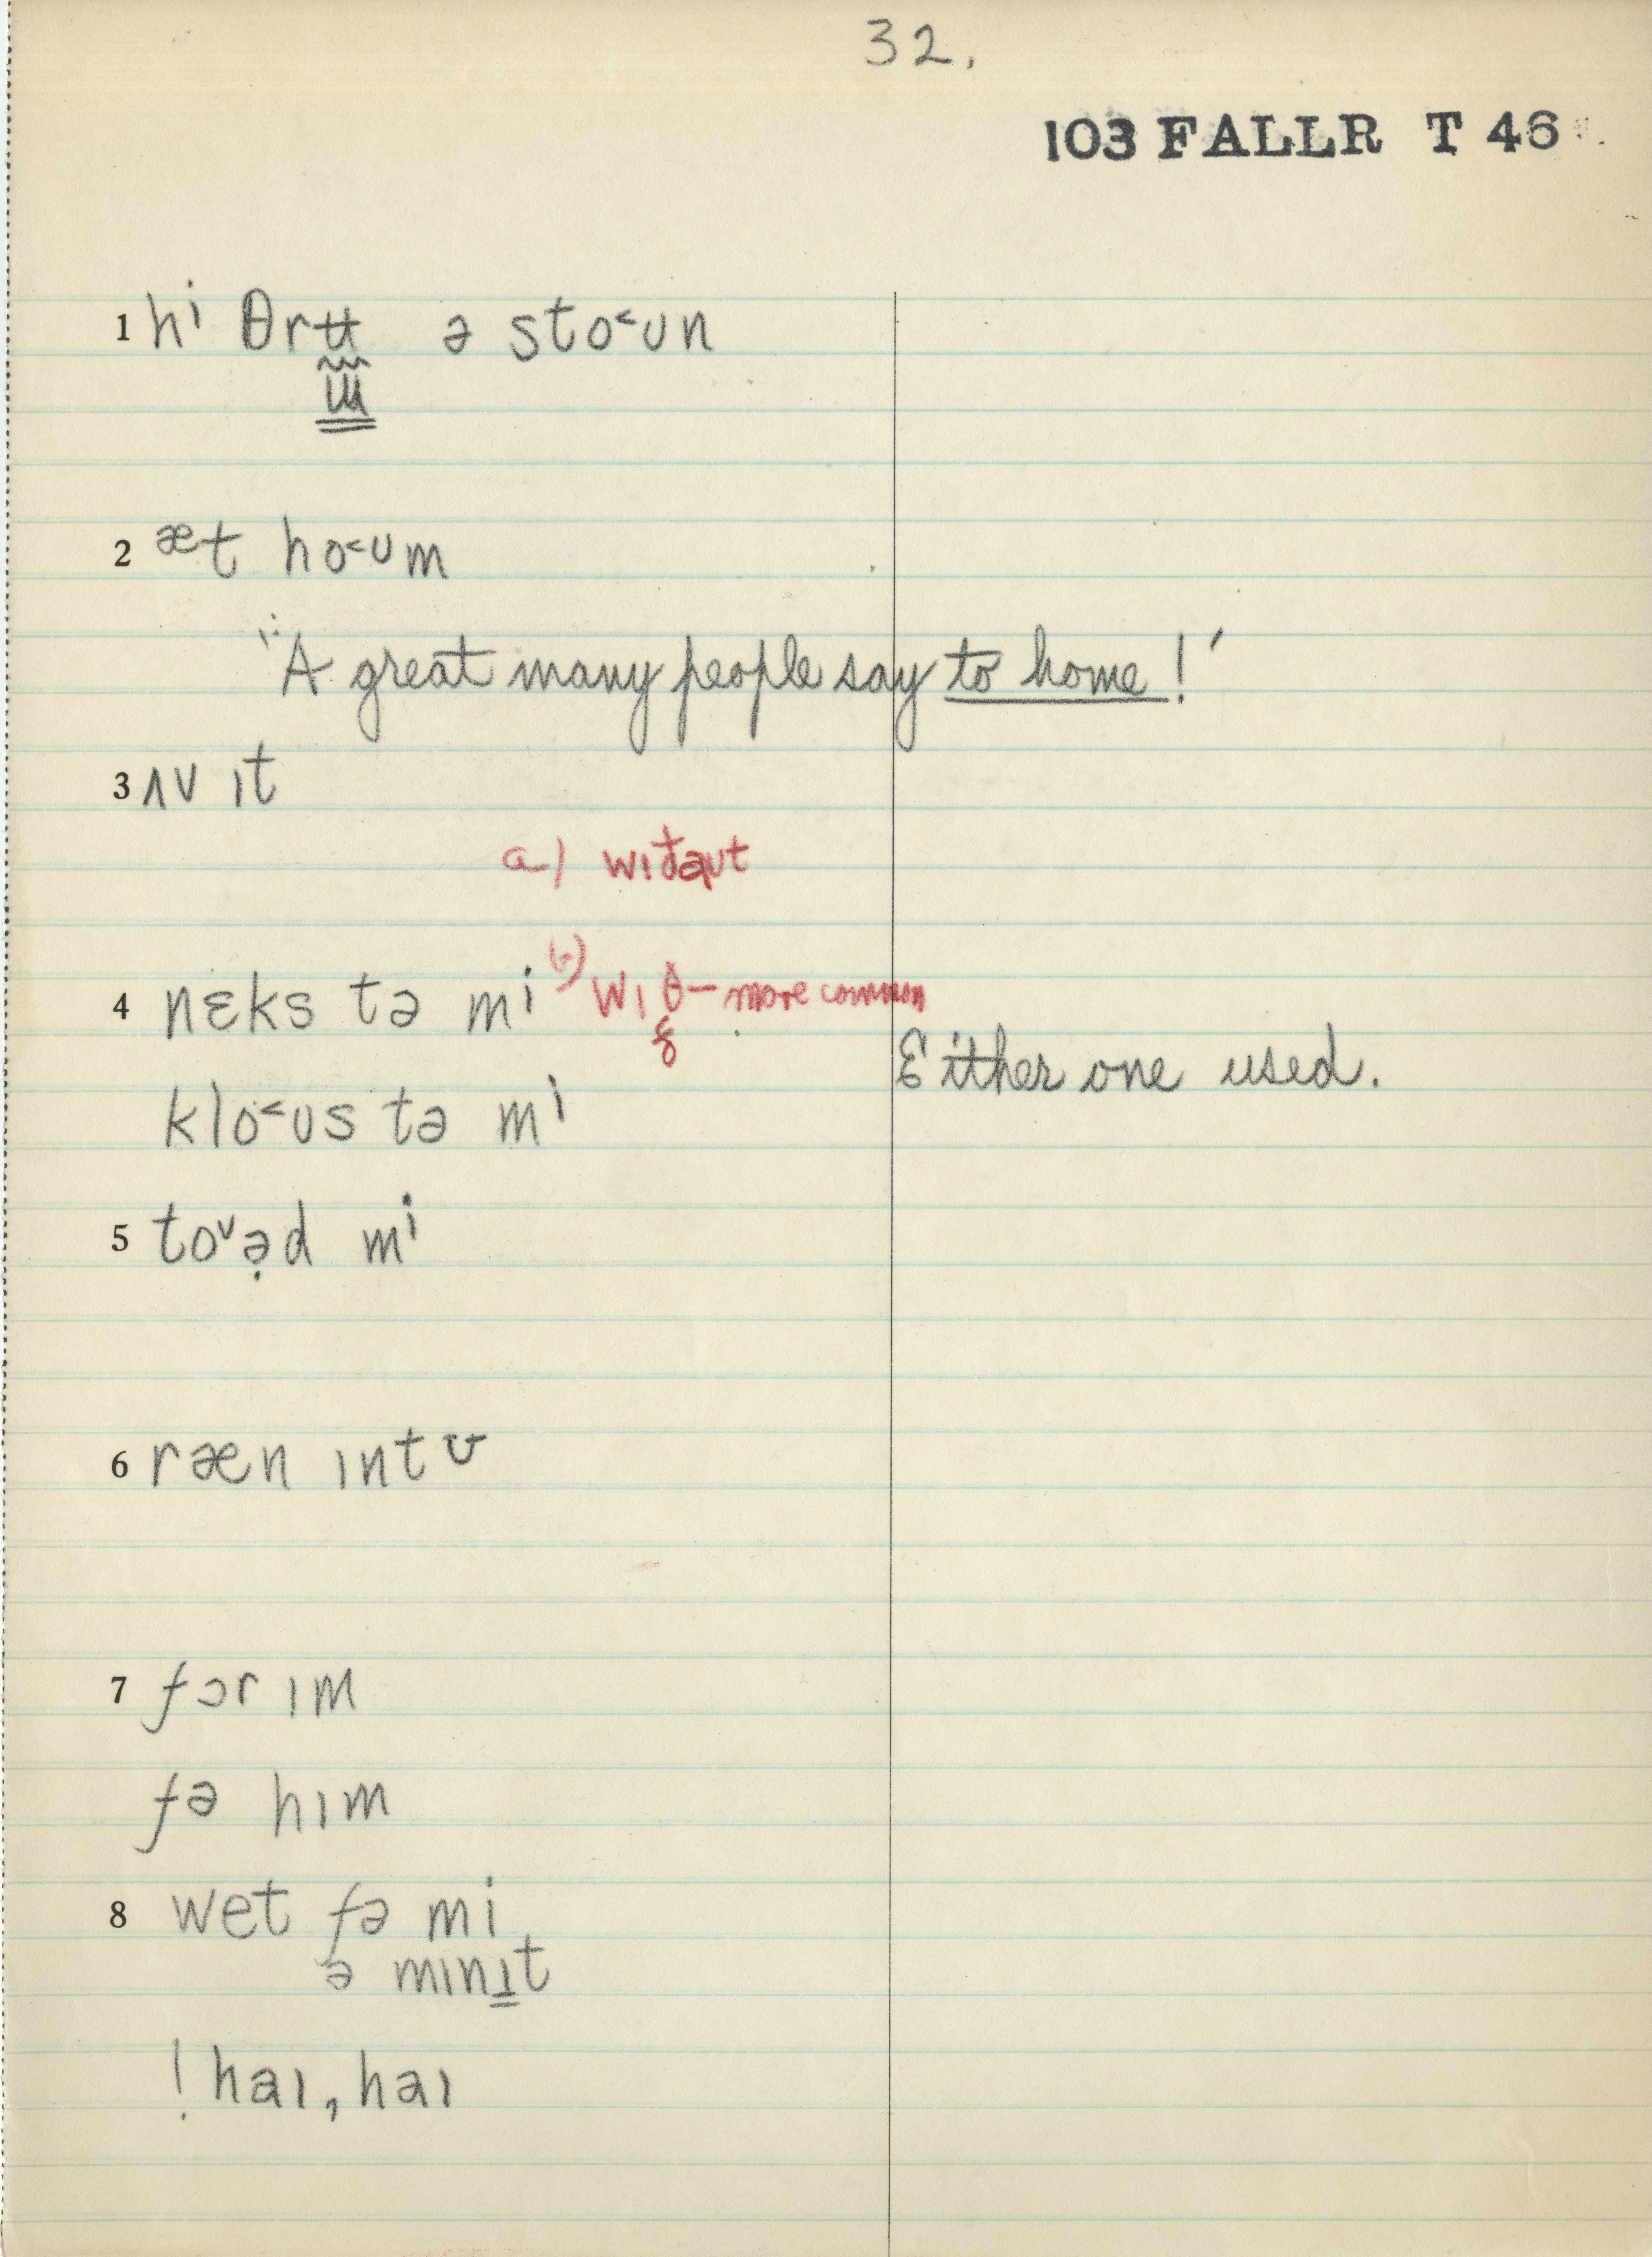 32.
103 FALLR T 46
1 hi θrʉ ə sto˂ᴜn
ɯ
2 æt ho˂ᴜm
"A great many people say to home!'
3 ʌv ɪt
a) wɪt̬aᴜt
4 nɛks tə mi b) wɪθ – more common
ð
Either one used.
klo˂ᴜs tə mi
5 to˅ə̣d mi
6 ræn ɪntʊ
7 fɔr ɪm
fə hɪm
8 wet fə mi
ə mɪnɪt
! haɪ, haɪ